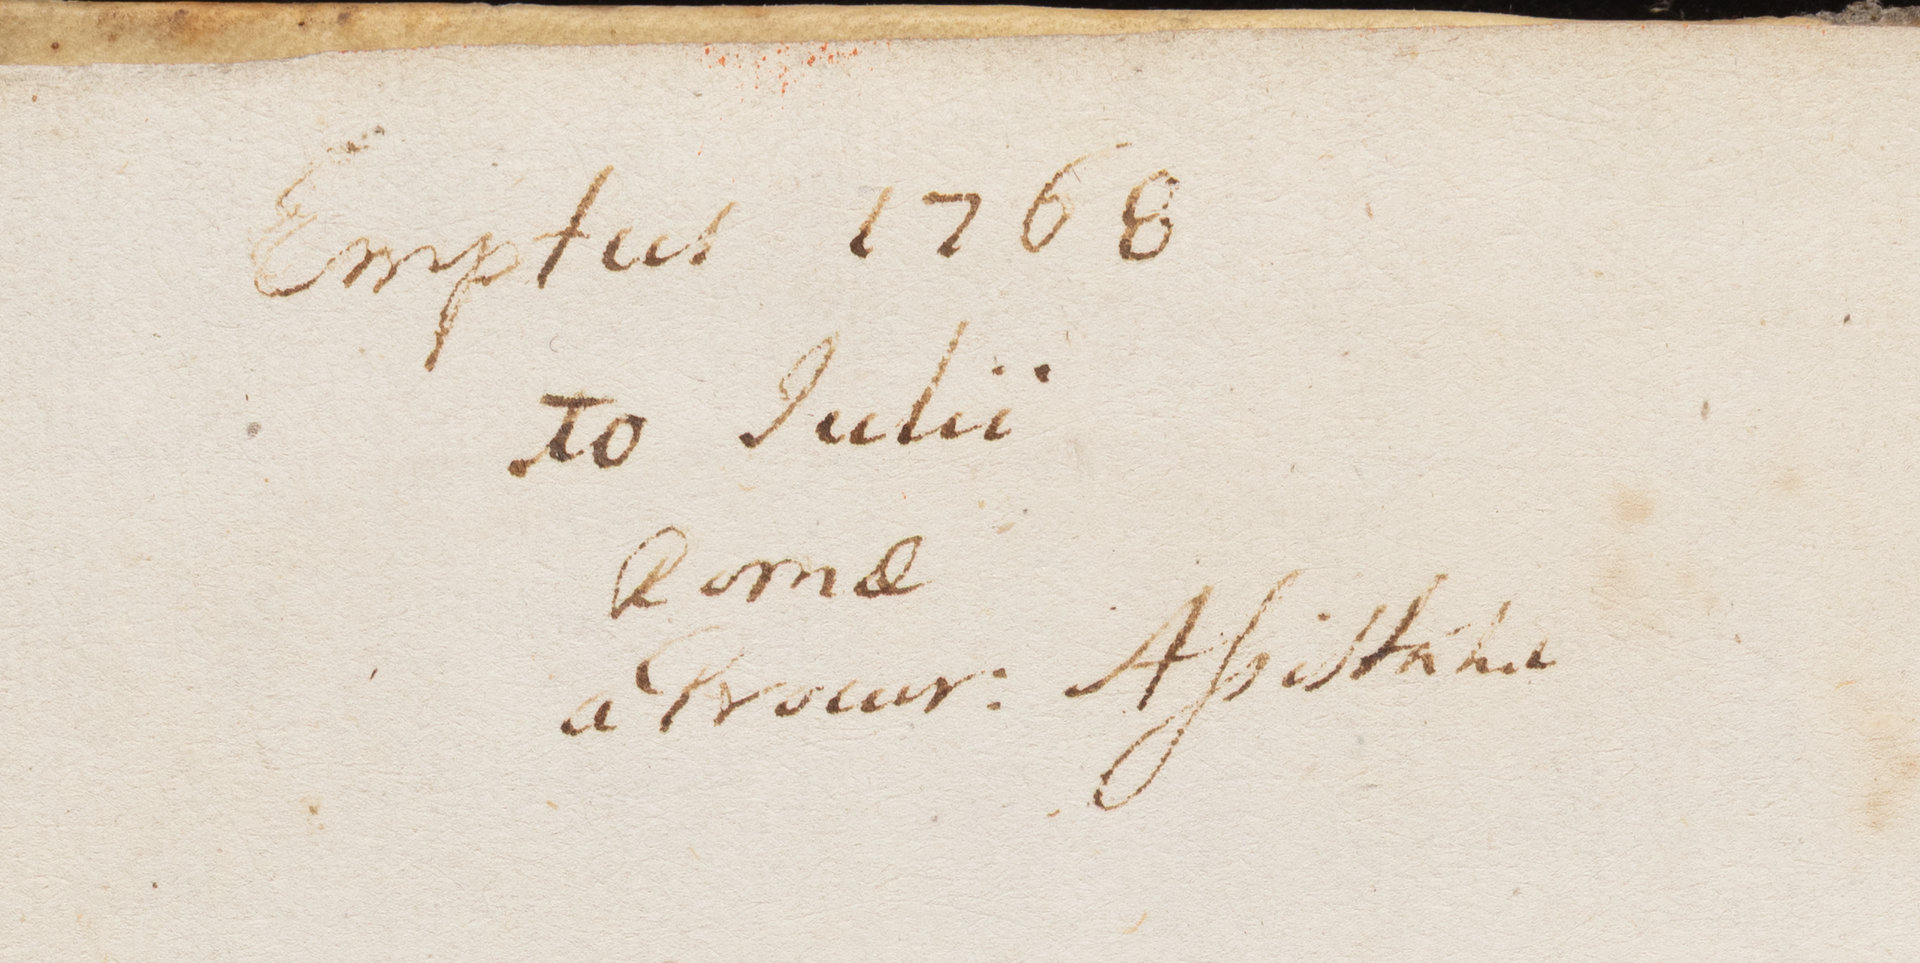 Emptus 1768
10 Iulii
Romæ
a Procur: Assistente